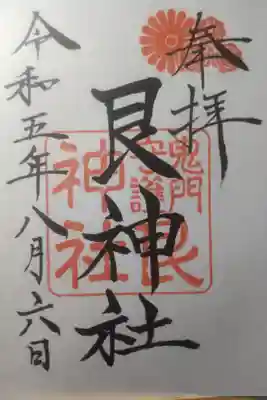 奉拝
艮神社
令和五年八月六日
鬼門守護
艮神社